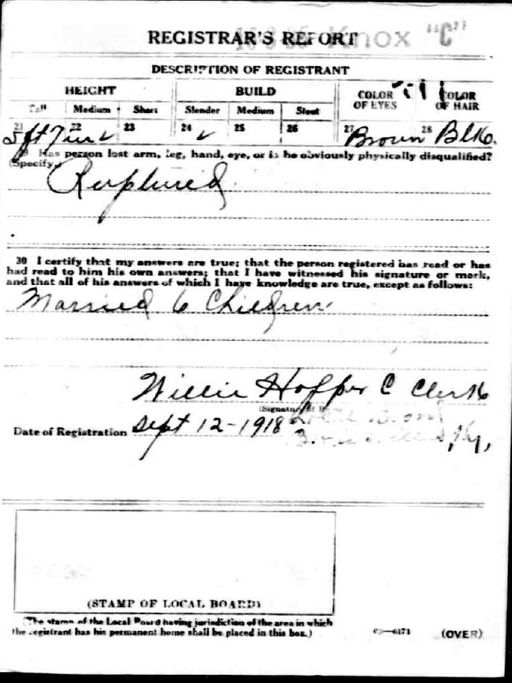 Knox "C"
REGISTRAR'S REPORT
DESCRIPTION OF REGISTRANT
HEIGHT BUILD COLOR OF EYES COLOR OF HAIR
Tall Medium Short Slender Medium Stout
21 22 23 24 25 26 27 28
5 ft 7 in ✓ ✓ Brown Blk
29 Has person lost arm, leg, hand, eye, or is he obviously physically disqualified?
(Specify)
Ruptured
30 I certify that my answers are true; that the person registered has read or has
had read to him his own answers; that I have witnessed his signature or mark,
and that all of his answers of which I have knowledge are true, except as follows:
Married 6 Children
Willie Hopper C Clerk
Date of Registration Sept 12-1918
Ky.
(STAMP OF LOCAL BOARD)
(The stamp of the Local Board having jurisdiction of the area in which
the registrant has his permanent home shall be placed in this box.)
(OVER)